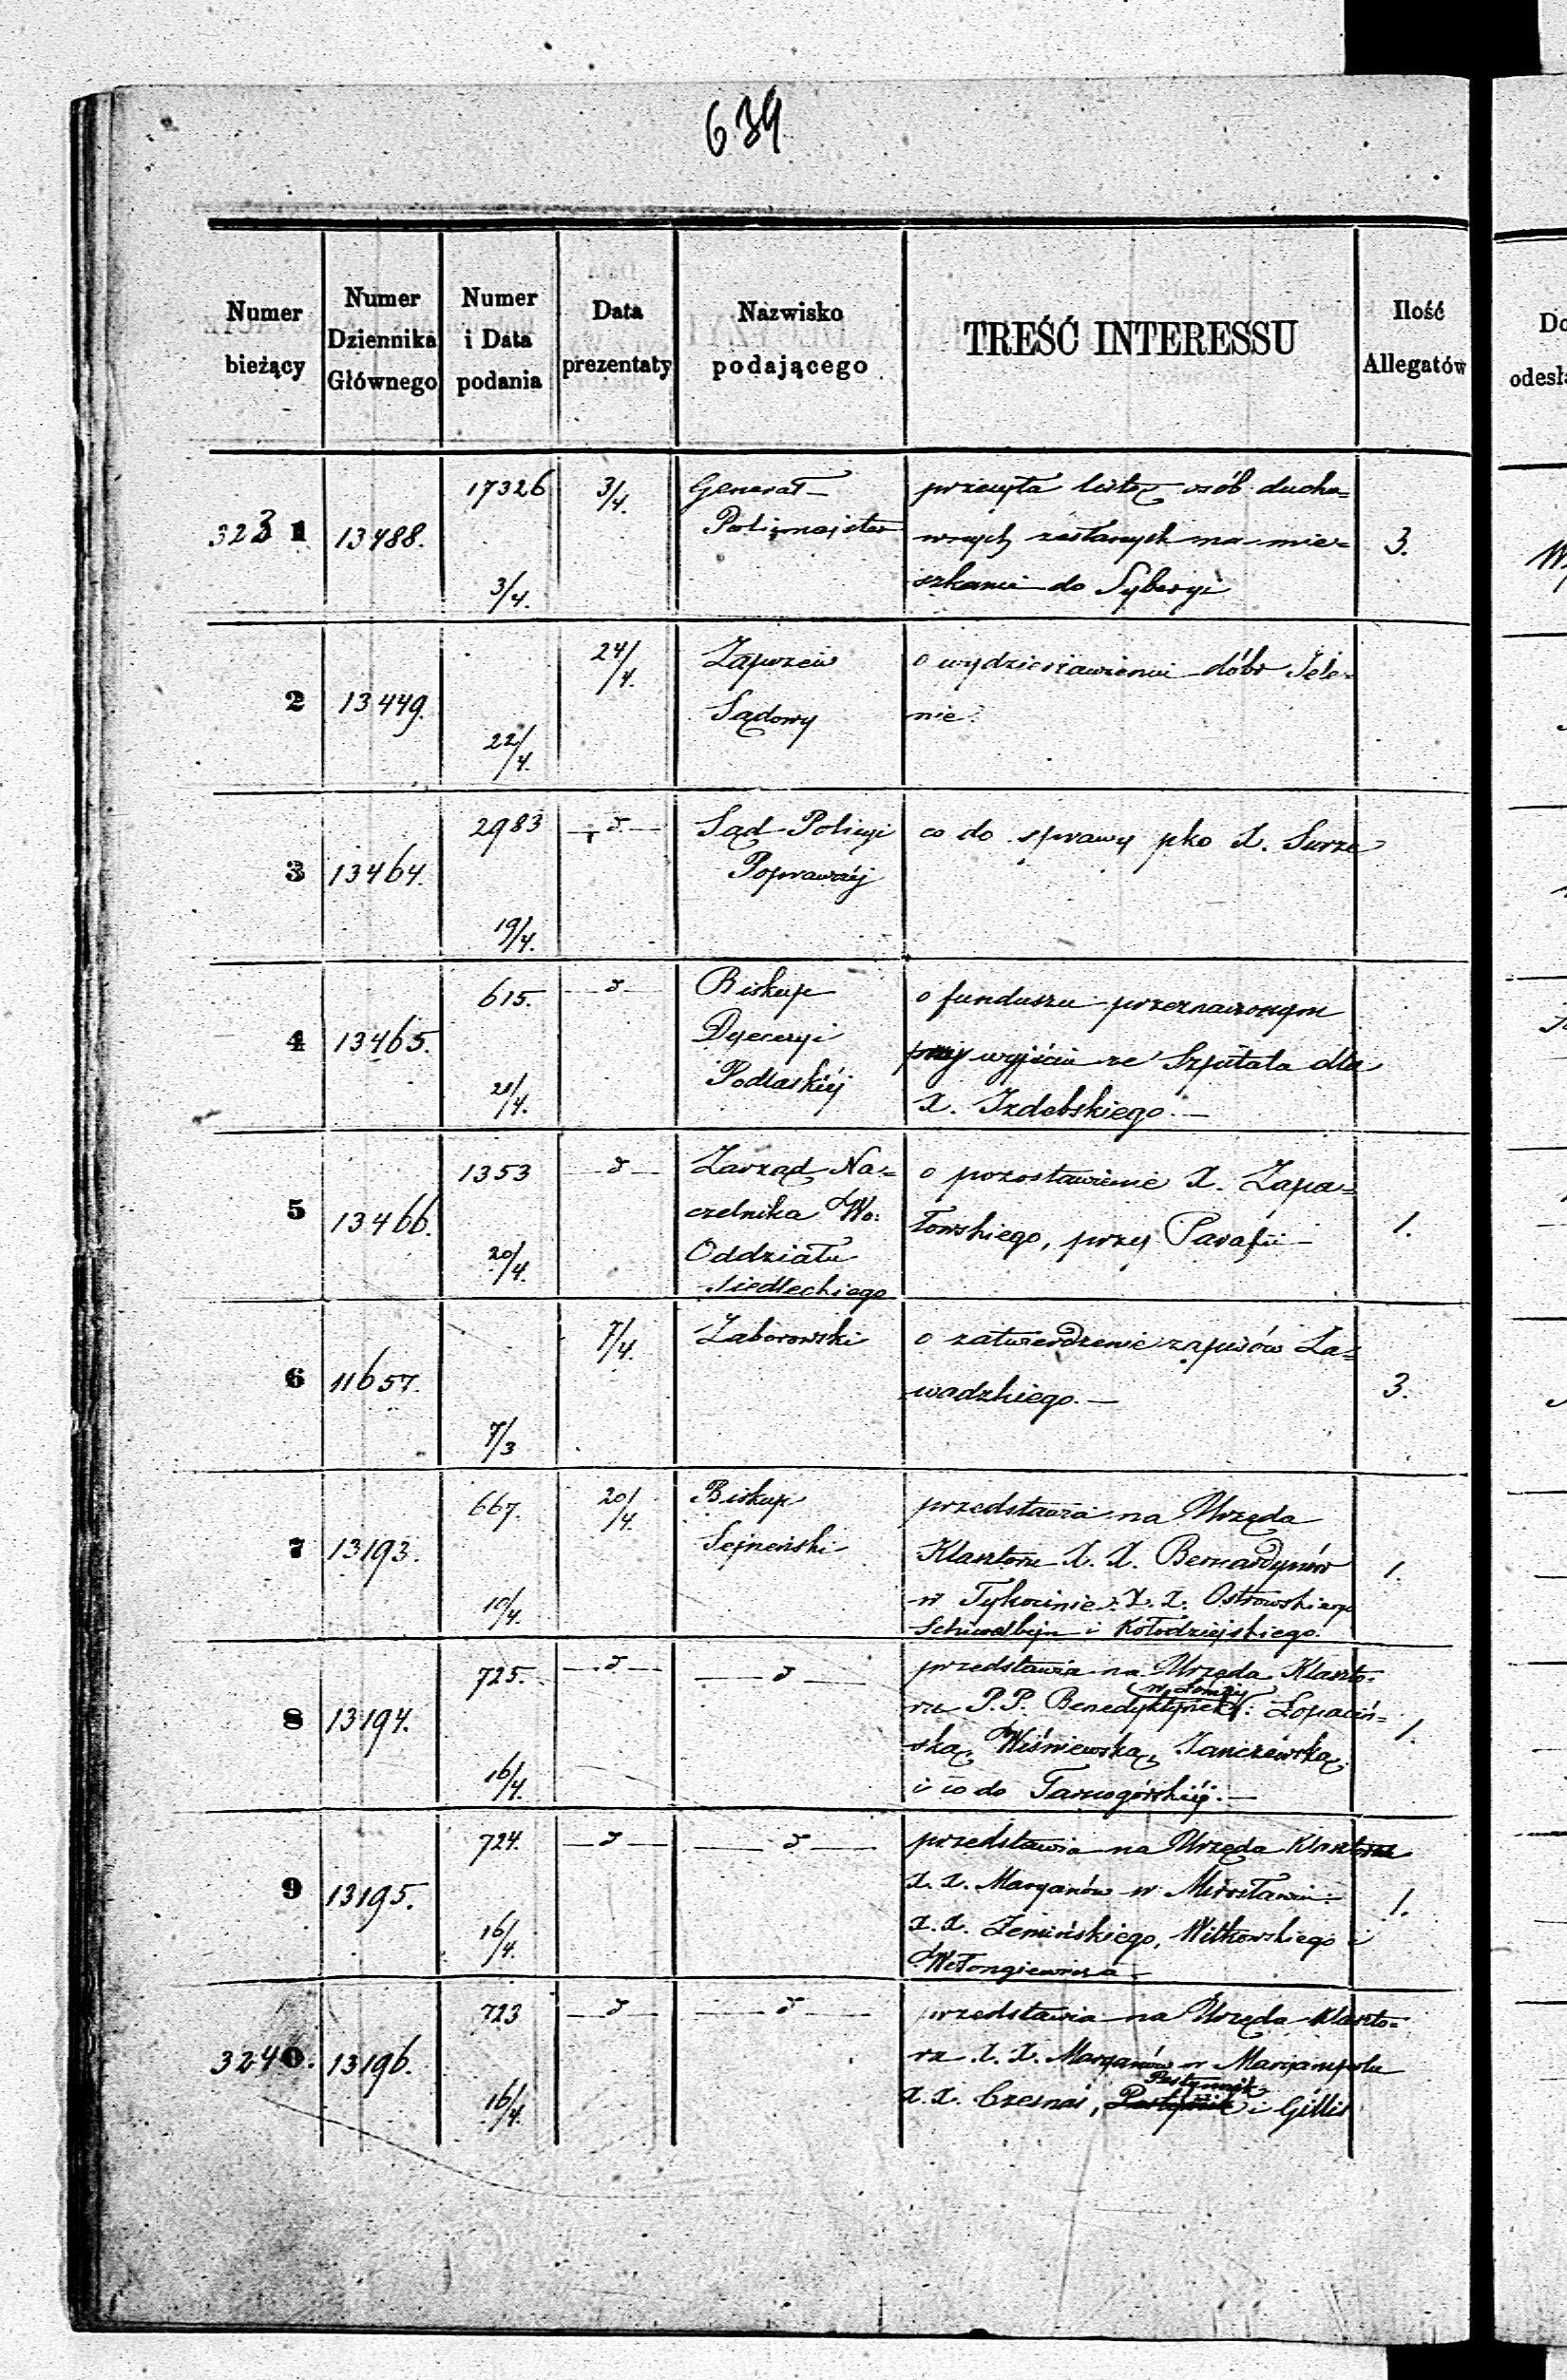 634
Numer bieżący
Numer Dziennika Głównego
Numer i Data podania
Data prezentaty
Nazwisko podającego
TREŚĆ INTERESSU
Ilość Allegatów
Do
odesła
3231 13488. 17326 3/4. 3/4. Generał-
Policmajster
przesyła listę osób ducho=
wnych zesłanych na mie=
szkanie do Syberyi
3.
2 13449. 22/4. 24/4.
Sądowy
o wydzierżawienie dóbr Jele=
nie.
3 13464. 2983 19/4. d Sąd Policyi
Poprawczéj
co do sprawy pko X. Surze
4 13465. 615. 21/4. d Biskup
Dyecezyi
Podlaskiéj
o funduszu przeznaczonym
przy wyjściu ze Szpitala dla
X. Izdebskiego.—
5 13466. 1353 20/4. d Zarząd Na=
czelnika Wo:
Oddziału
Siedleckiego
o pozostawienie X. Zapa=
łowskiego, przy Parafii—
1.
6 11657. 7/3 7/4. Zaborowski
o zatwierdzenie zapisów Za=
wadzkiego.—
3.
7 13193. 667. 10/4. 20/4. Biskup
Sejneński
przedstawia na Urzęda
Klasztoru X. X. Bernardynów
w Tykocinie: X. X. Ostrowskiego
i Kołodziejskiego.
1.
8 13194. 725. 16/4. d d
przedstawia na Urzęda Klaszto=
w Łomży
ru P.P. Benedyktynek: Łopaciń=
ską, Wiśniewską, Janczewską
i co do Tarnogórskiéj.—
1.
9 13195. 724. 16/4. d d
przedstawia na Urzęda Klasztoru
X. X. Maryanów w Mirosławiu:
X. X. Zemińskiego, Witkowskiego i
1.
3240. 13196. 723 16/4. d d
przedstawia na Urzęda Klaszto=
ru X. X. Maryanów w Maryampolu
X. X. Czesnaś, i Gillis